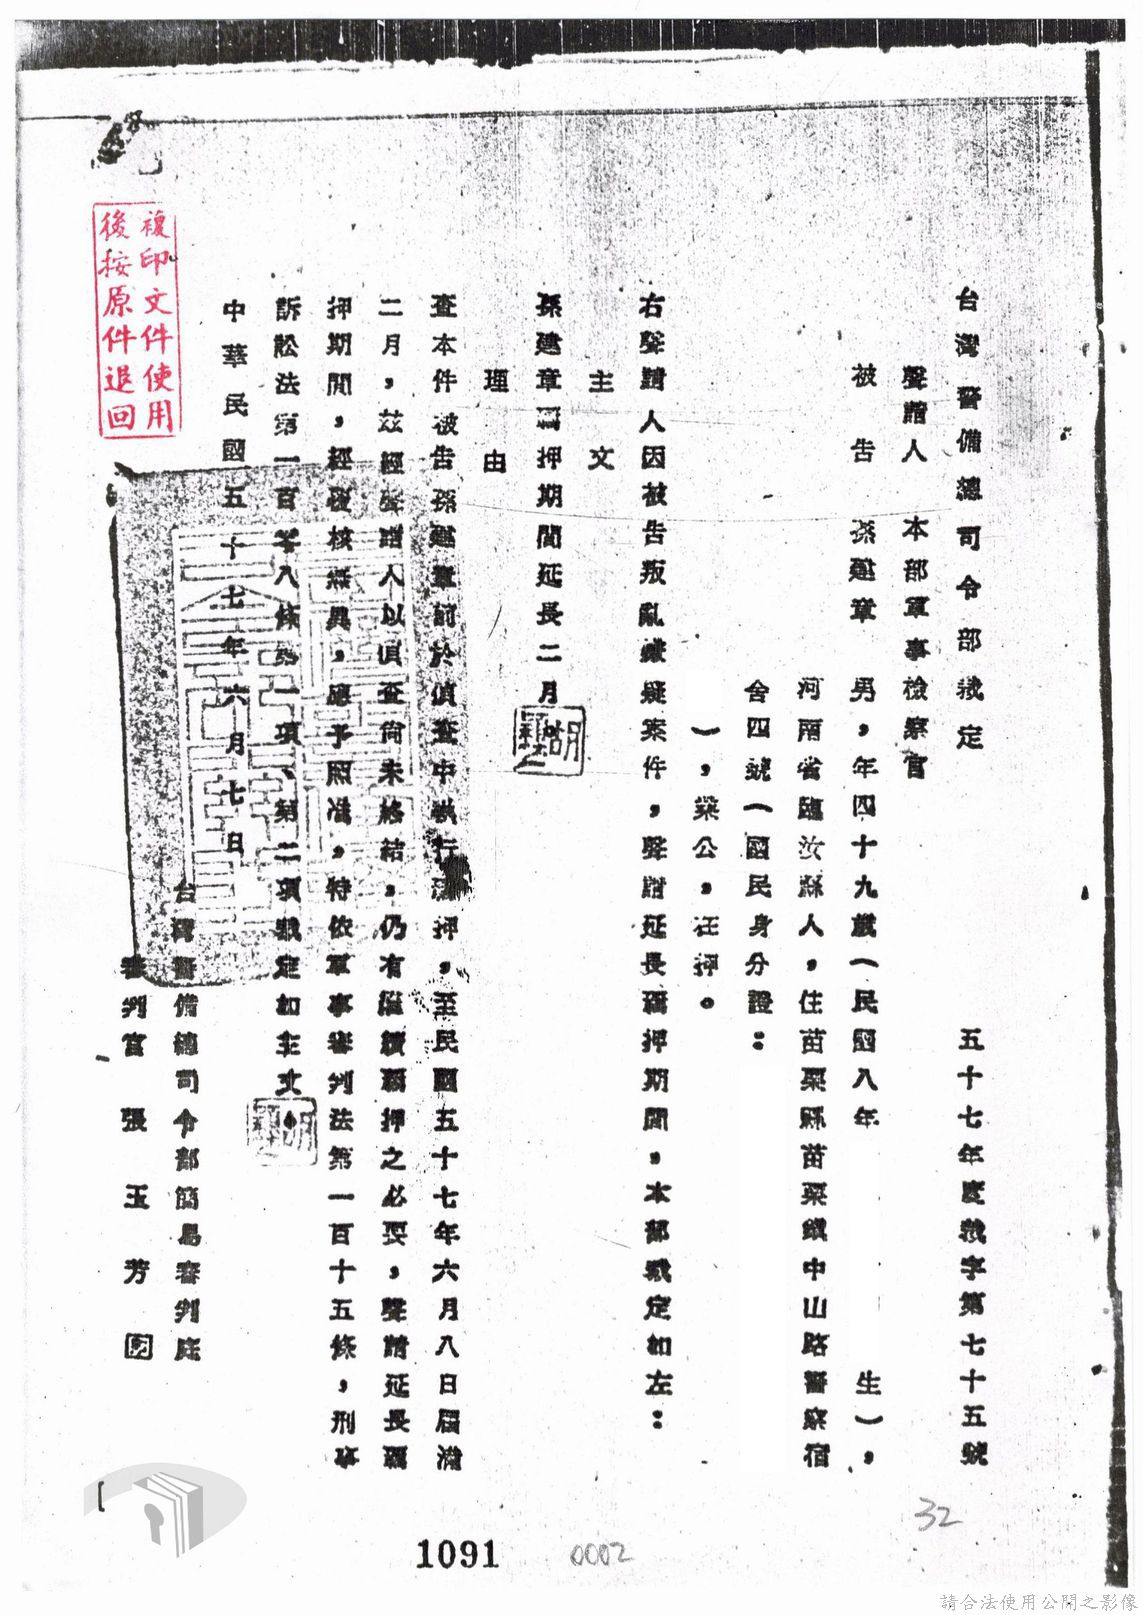 台灣警備總司令部裁定　五十七年度裁字第七十五號
聲請人　本部軍事檢察官
被告　孫建章　男，年四十九歲（民國八年　生），
河南省臨汝縣人，住苗栗縣苗栗鎮中山路警察宿
舍四號（國民身分證：
），業公，在押。
右聲請人因被告叛亂嫌疑案件，聲請延長羈押期間，本部裁定如左：
主文
孫建章羈押期間延長二月
理由
查本件被告孫建章前於偵查中執行羈押，至民國五十七年六月八日屆滿
二月，茲經聲請人以偵查尚未終結，仍有繼續羈押之必要，聲請延長羈
押期間，經復核無異，應予照准，特依軍事審判法第一百十五條，刑事
訴訟法第一百零八條第一項、第二項裁定如主文。
中華民國五十七年六月七日
台灣警備總司令部簡易審判庭
審判官　張玉芳　印
複印文件使用
後按原件退回
1091
0002
32
請合法使用公開之影像